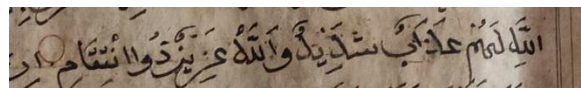 اللَّهِ لَهُمْ عَذَابٌ شَدِيدٌ وَاللَّهُ عَزِيزٌ ذُوا انْتِقَامٍ اِنَّ